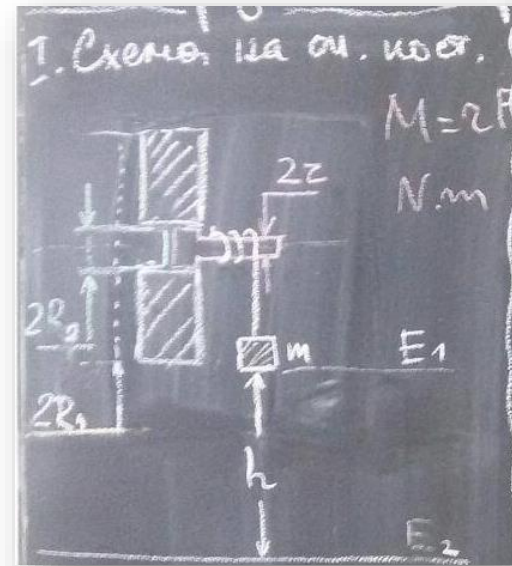 I. Схема на оп. пост.
M=rF
N.m
2r
2R₂
m
E₁
2R₁
h
E₂